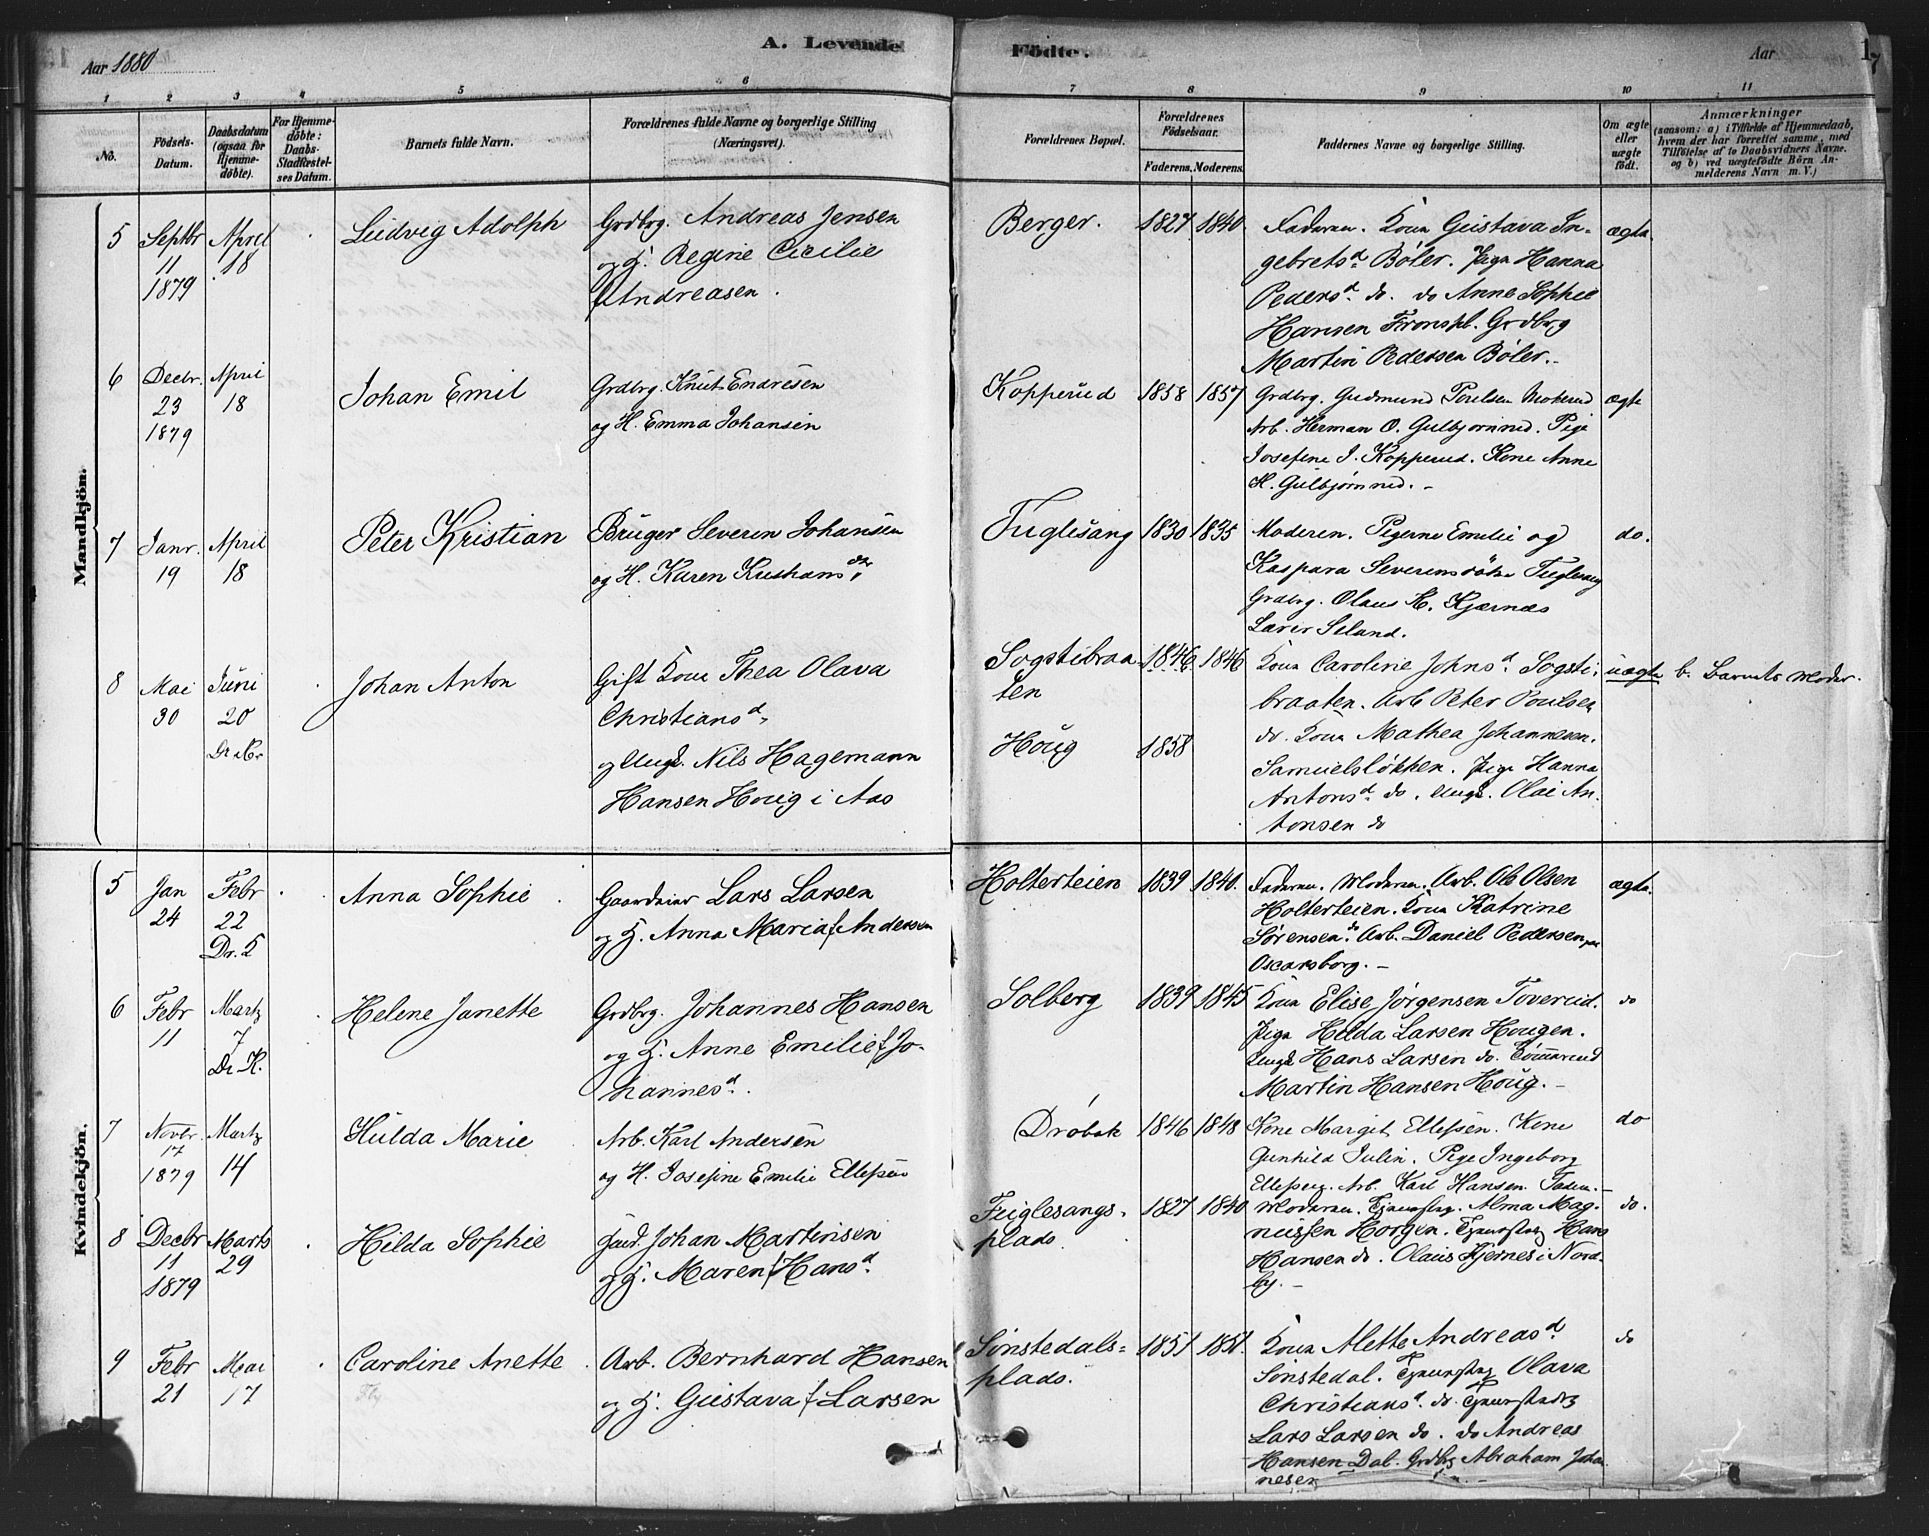 Aar 1880
A. Levende
Födte.
Aar
17
1
2
3
4
5
6
7
8
9
10
11
No.
Fødsels-
Datum.
Daabsdatum
(ogsaa for
Hjemme-
døbte).
For Hjemme-
døbte:
Daabs-
Stadfæstel-
ses Datum.
Barnets fulde Navn.
Forældrenes fulde Navne og borgerlige Stilling
(Næringsvei).
Forældrenes Bopæl.
Forældrenes
Fødselsaar.
Faderens.
Moderens.
Faddernes Navne og borgerlige Stilling.
Om ægte
eller
uægte
født.
Anmærkninger
(saasom: a) i Tilfælde af Hjemmedaab,
hvem der har forrettet samme, med
Tilføielse af to Daabsvidners Navne.
og b) ved uægtefødte Börn An-
melderens Navn m. V.)
Mandkjön.
5
Septbr
11
1879
April
18
Ludvig Adolph
Grdbrg. Andreas Jensen
og H. Regine Cicilie
Andreasen.
Berger.
1827
1840
Faderen. Kone Gustava In-
gebretsd. Bøler. Pige Hanna
Pedersd. do. do Anne Sophie
Hansen Fronspl. Grdbrg
Martin Pedersen Bøler.
ægte
6
Decbr.
23
1879
April
18
Johan Emil
Grdbrg. Knut Endresen
og H. Emma Johansen
Kopperud
1858
1857
Grdbrg. Gudmund Poulsen Mokerud
Arb. Herman O. Gulbjørnrud. Pige
Josefine J. Kopperud. Kone Anne
H. Gulbjørnrud. -
ægte
7
Janr.
19
April
18
Peter Kristian
Bruger Severin Johansen
og H. Karen Kristiansdtr.
Fuglesang
1830
1835
Moderen. Pigerne Emilie og
Kaspara Severinsdøtre Fuglesang
Grdbrg. Olaus K. Kjærnæs
Lærer Seland.
do.
8
Mai
30
Juni
20
Johan Anton
Gift Kone Thea Olava
Christiansd.
og Ungk. Nils Hagemann
Hansen Houg i Aas
Sogstibraa-
ten
Houg
1846
1846
1858
Kone Caroline Johnsd. Sogsti-
braaten. Arb Peter Poulsen
do. Kone Mathea Johannesen.
Samuelsløkken. Pige Hanna
Antonsd. do. Ungk. Olai An-
tonsen do
uægte
b. Barnets Moder.
Kvindekjön.
5
Jan
24
Febr
22
Dr. 5
Anna Sophie
Gaardeier Lars Larsen
og H. Anna Maria f Andersen
Holterteien
1839
1840.
Faderen. Moderen. Arb. Ole Olsen
Holterteien. Kone Katrine
Sørensen do. Arb. Daniel Pedersen paa
Oscarsborg. -
ægte.
6
Febr
11
Martz
7
Dr K.
Helene Janette
Grdbrg. Johannes Hansen
og H. Anne Emilie f Jo-
hannesd.
Solberg
1839
1845
Kone Elise Jørgensen Toverud.
Pige Hilda Larsen Hougen.
Ungk Hans Larsen do. Tømmermd
Martin Hansen Houg. -
do
7
Novbr.
17
1879
Martz
14
Hulda Marie
Arb. Karl Andersen
og H. Josefine Emilie Ellefsen
Drøbak
1846
1848
Kone Margit Ellefsen. Kone
Gunhild Julin. Pige Ingeborg
Ellefsen. Arb. Karl Hansen
do
8
Decbr
11
1879
Marts
29
Hilda Sophie
Johan Martinsen
og H. Maren f Hansd.
Fuglesangs-
plads.
1827
1840
Moderen. Alma Mag-
nussen Horgen. Hans
Hansen do. Olaus Kjernes i Nord-
by. -
do.
9
Febr
21
Mai
17
Caroline Anette
Arb. Bernhard Hansen
og H. Gustava f Larsen
Sønstedals-
plads.
1851
1851.
Kone Alette Andreasd
Sønstedal. Olava
Christiansd. do.
Lars Larsen do. do Andreas
Hansen Dal. Grdbrg Abraham Johan
nesen
do